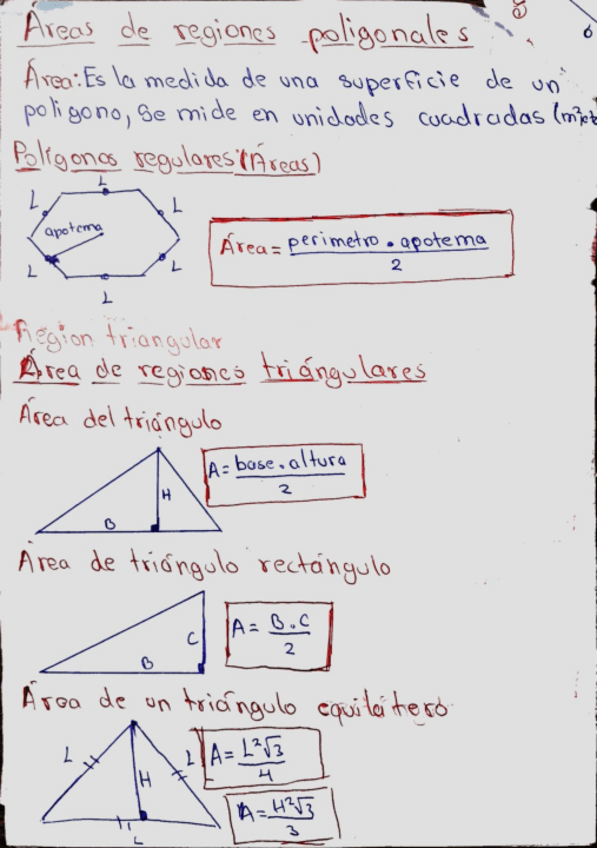 Áreas de regiones poligonales
Área: Es la medida de una superficie de un
poligono, se mide en unidades cuadradas (m²,etc
Polígonos regulares (Áreas)
L
L
L
apotema
L
L
L
Área = perimetro . apotema / 2
Region triangular
Área de regiones triángulares
Área del triángulo
A = base . altura / 2
H
B
Área de triángulo rectángulo
A = B . C / 2
C
B
Área de un triángulo equilátero
L
L
A = L²√3 / 4
H
A = H²√3 / 3
L